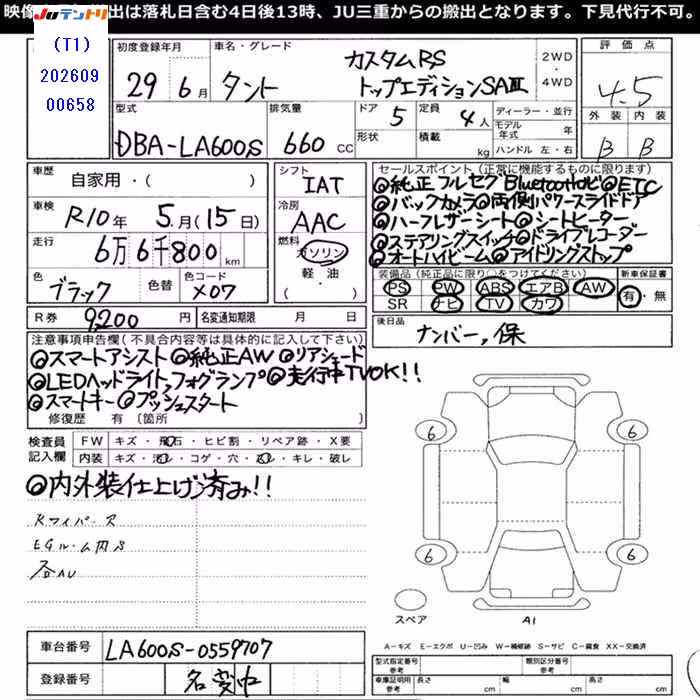 映像 出は落札日含む4日後13時、JU三重からの搬出となります。下見代行不可。
JUテントリ
(T1)
202609
00658
初度登録年月
29年6月
車名・グレード
タント
カスタムRS
トップエディションSAⅢ
2WD
・
4WD
評価点
4.5
外装 内装
B B
型式
DBA-LA600S
排気量
660 CC
ドア 5
形状
定員 4人
積載 kg
ディーラー・並行
モデル年式 年
ハンドル 左・右
車歴 自家用・( )
車検 R10年 5月(15日)
走行 6万6千800km
色 ブラック 色替
色コード X07
R券 9200円
名変通知期限 月 日
シフト IAT
冷房 AAC
燃料 ガソリン
軽・油
( )
セールスポイント(正常に機能するものに限ります)
◎純正フルセグBluetoothナビ◎ETC
◎バックカメラ◎両側パワースライドドア
◎ハーフレザーシート◎シートヒーター
◎ステアリングスイッチ◎ドライブレコーダー
◎オートハイビーム◎アイドリングストップ
装備品(純正品に限り○をつけてください)
PS PW ABS エアB AW
SR ナビ TV カワ
新車保証書
有・無
後日品
ナンバー,保
注意事項申告欄(不具合内容等は具体的に記入して下さい)
◎スマートアシスト◎純正AW◎リアシェード
◎LEDヘッドライト,フォグランプ◎走行中TVOK!!
◎スマートキー◎プッシュスタート
修復歴 有 〔箇所 〕
検査員記入欄
FW キズ・飛石・ヒビ割・リペア跡・X要
内装 キズ・汚レ・コゲ・穴・スレ・キレ・破レ
◎内外装仕上げ済み!!
Rワイパース
EGルーム内S
各AU
6
6
6
6
スペア
A1
A=キズ E=エクボ U=凹み W=補修跡 S=サビ C=腐食 XX=交換済
車台番号 LA600S-0559707
登録番号 名変中
型式指定番号
類別区分番号
車庫証明用参考
長さ cm
幅 cm
高さ cm